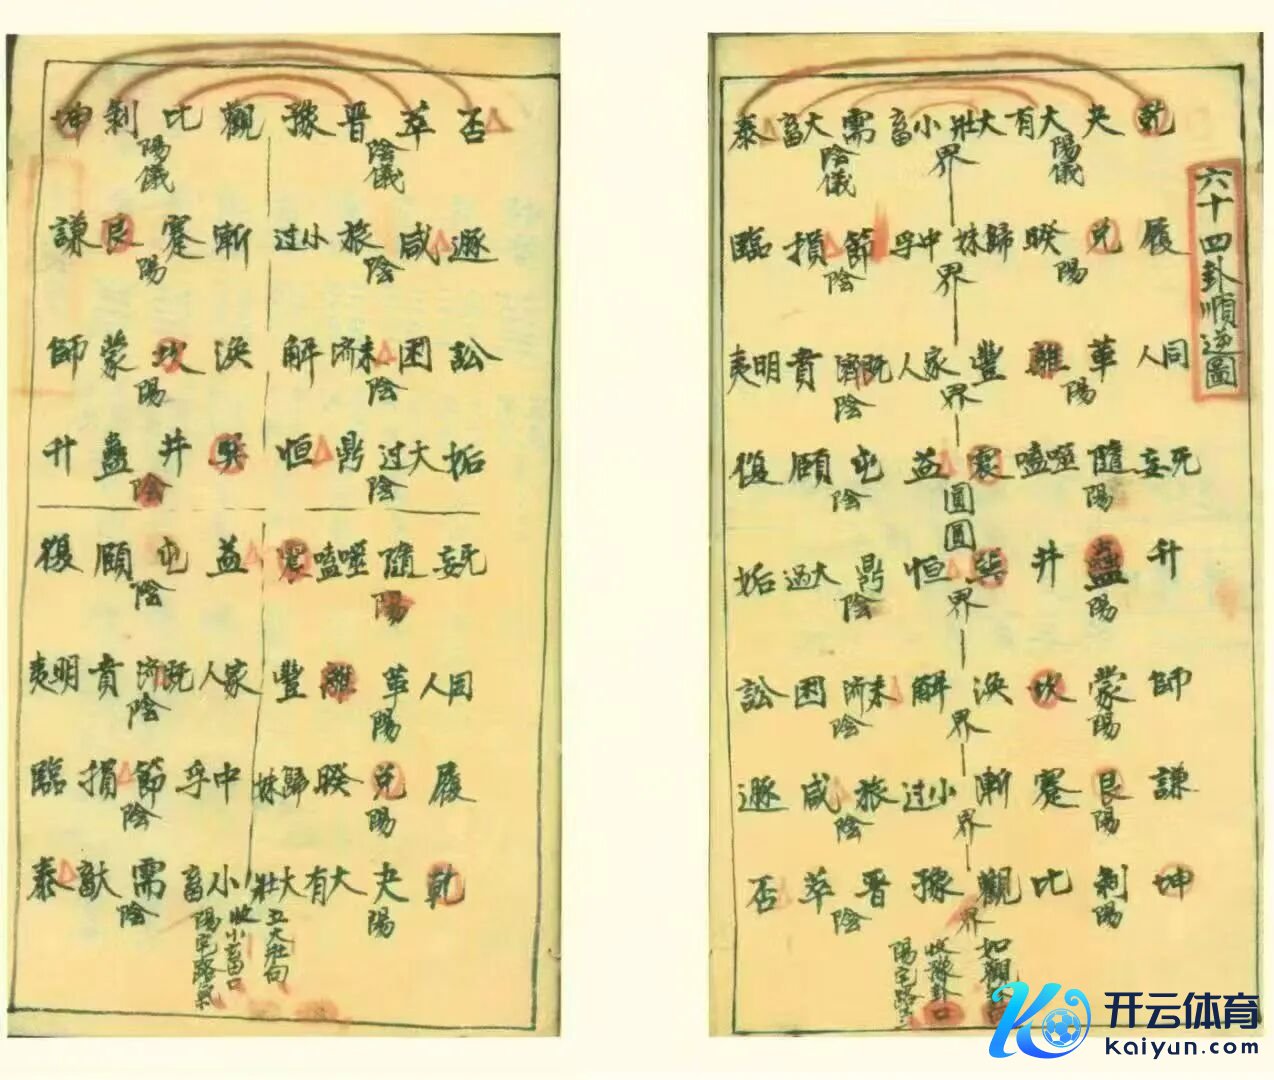 六十四卦順逆圖
乾 夬 大有 大壯 小畜 需 大畜 泰
陽儀 界 陰儀
履 兌 睽 歸妹 中孚 節 損 臨
陽 界 陰
同人 革 離 豐 家人 既濟 賁 明夷
陽 界 陰
无妄 隨 噬嗑 震 益 屯 頤 復
陽 圓 陰
圓
升 蠱 井 巽 恒 鼎 大過 姤
陽 界 陰
師 蒙 坎 渙 解 未濟 困 訟
陽 界 陰
謙 艮 蹇 漸 小过 旅 咸 遯
陽 界 陰
坤 剝 比 觀 豫 晋 萃 否
陽 界 陰
如觀
收豫卦口
陽宅路
否 萃 晋 豫 觀 比 剝 坤
陰儀 陽儀
遯 咸 旅 小过 漸 蹇 艮 謙
陰 陽
訟 困 未濟 解 渙 坎 蒙 師
陰 陽
姤 大过 鼎 恒 巽 井 蠱 升
陰 陰
无妄 隨 噬嗑 震 益 屯 頤 復
陽 陰
同人 革 離 豐 家人 既濟 賁 明夷
陽 陰
履 兌 睽 歸妹 中孚 節 損 臨
陽 陰
乾 夬 大有 大壯 小畜 需 泰
陽 陰
立大壯向
收小畜口
陽宅路氣
开云体育
Kaiyun.com